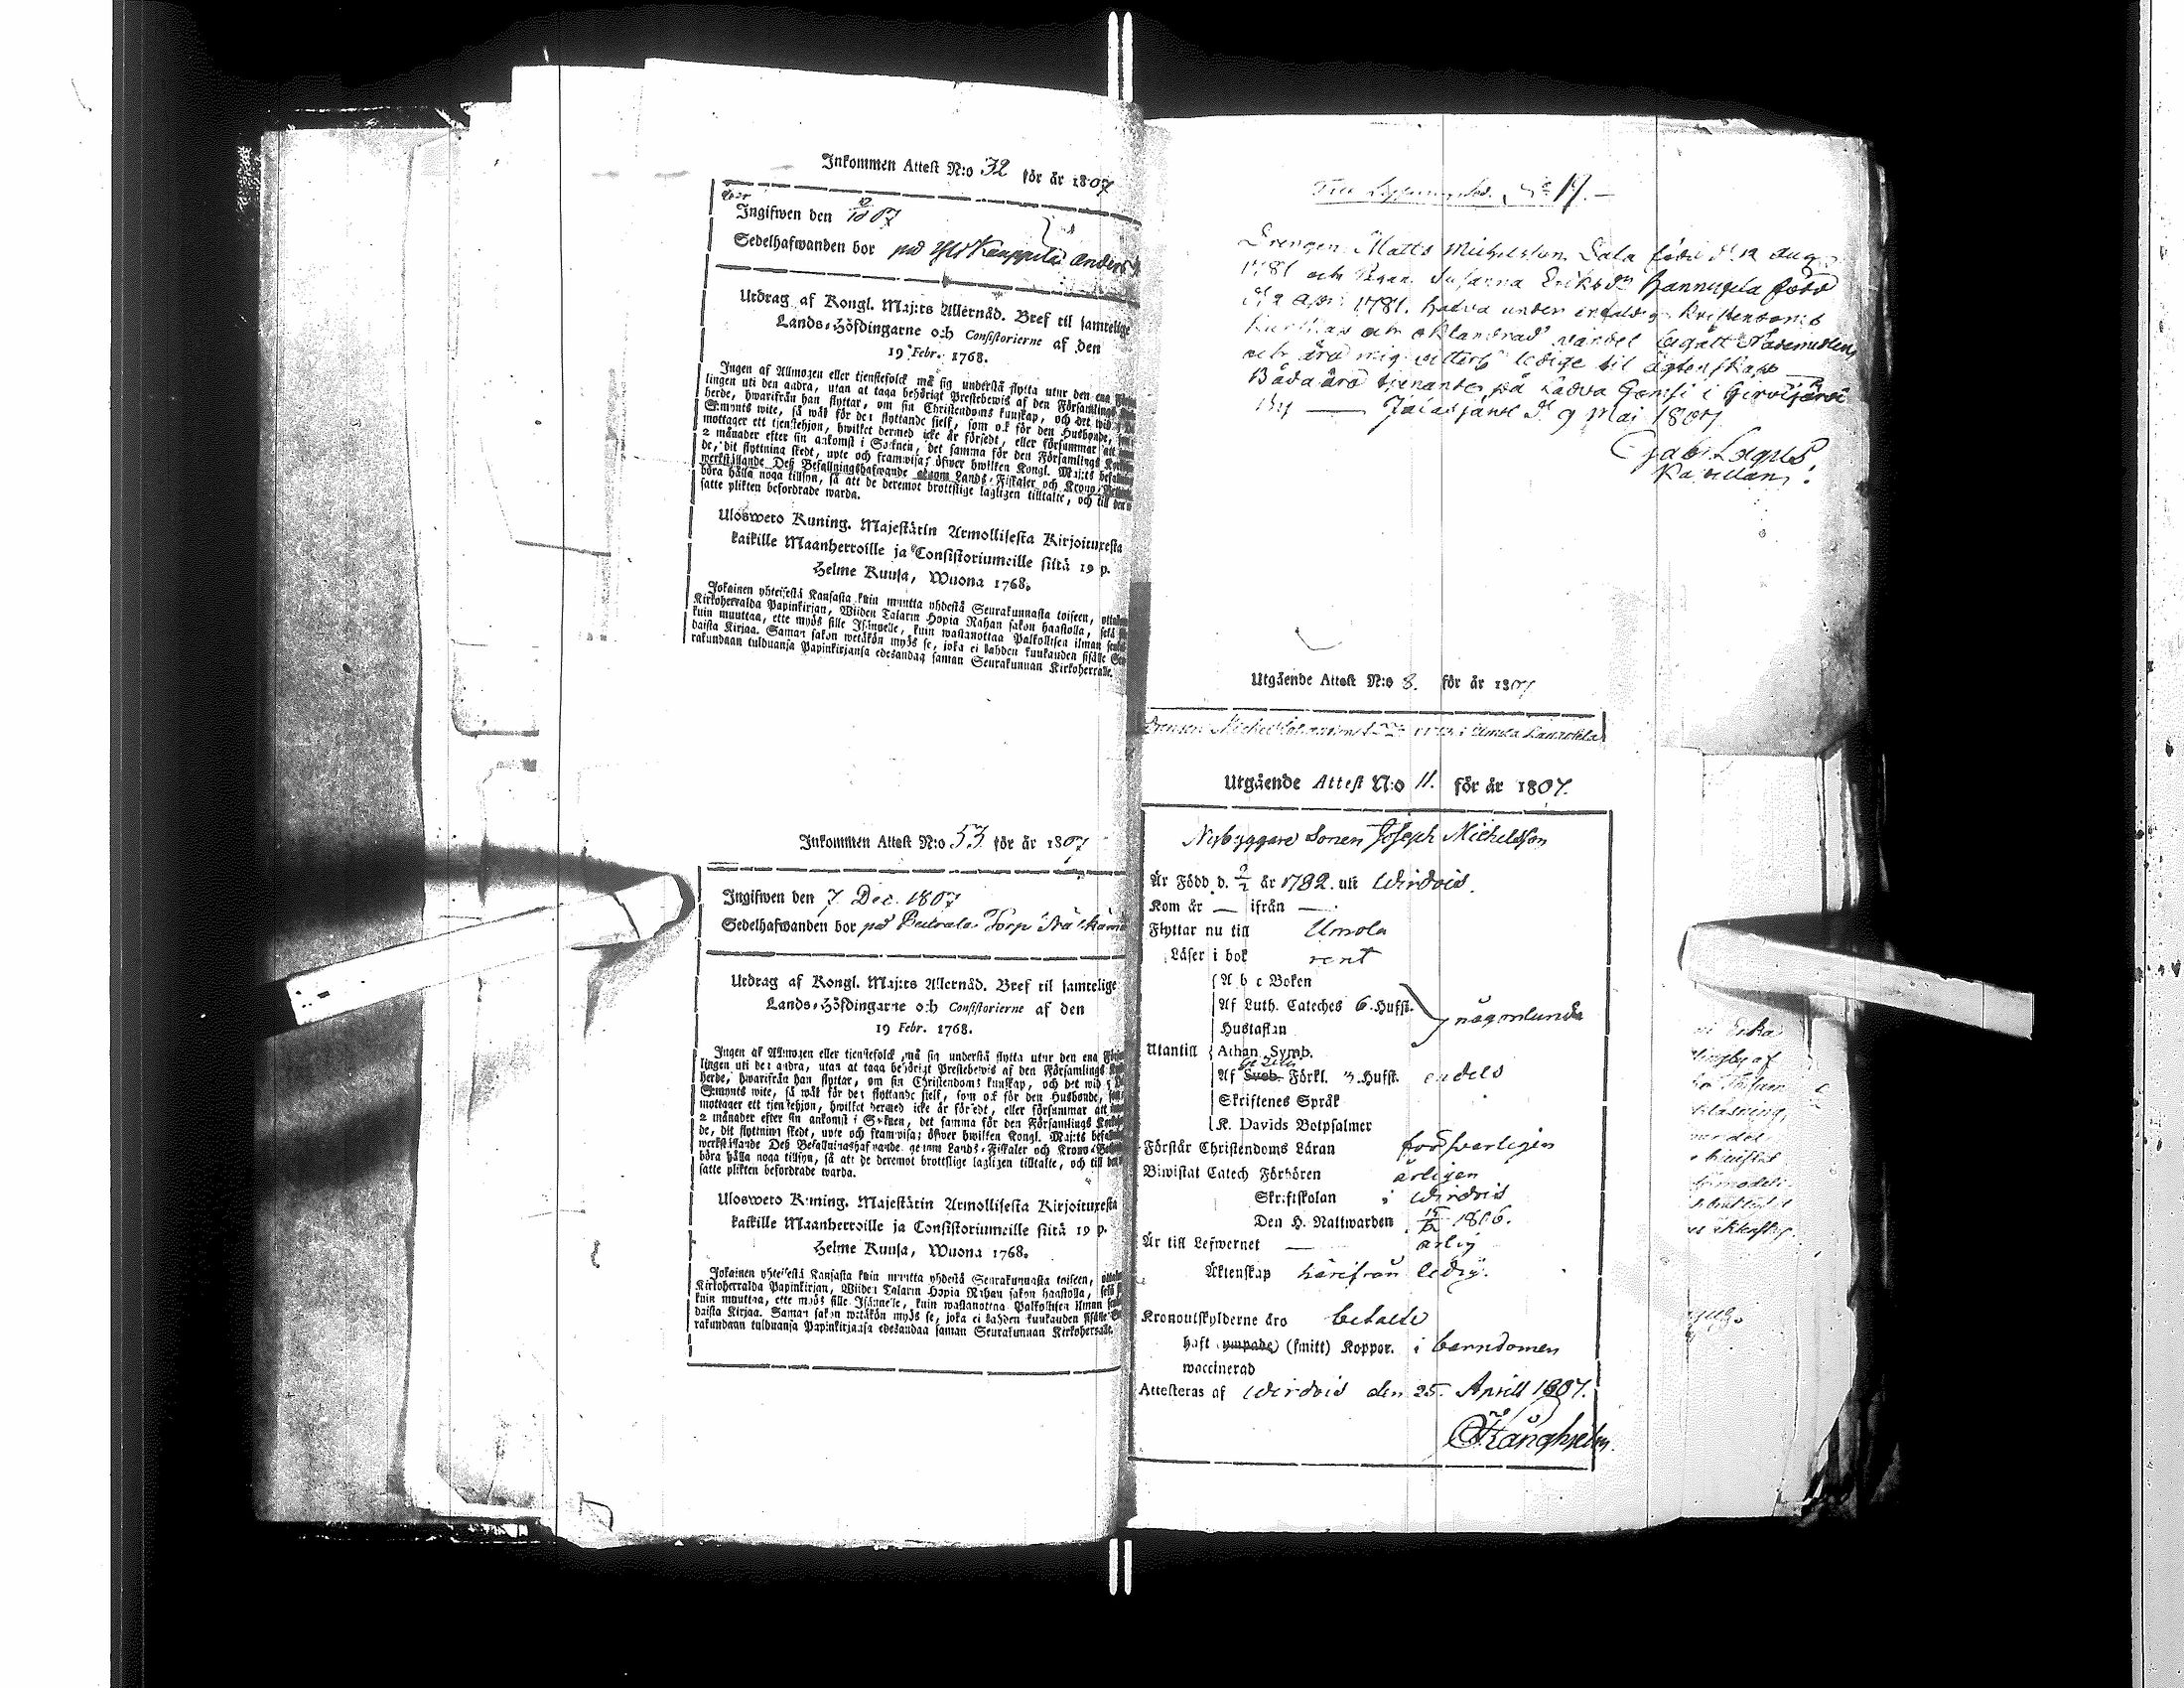 Inkommen Attest N:o 32 för år 1807
Ingifwen den
Sedelhafwanden bor på Käuppilä Anders
Utdrag af Kongl. Maj:ts Allernåd. Bref til samtelige
Lands-Höfdingarne och Consistorierne af den
19 Febr. 1768.
Ingen af Allmogen eller tienstefolck må sig understå flytta utur den ena
lingen uti den andra, utan at taga behörigt Prestebewis af den Församlings
herde, hwarifrån han flyttar, om sin Christendoms kunskap, och det wid 5
S:mynts wite, så wäl för den flyttande sielf, som ock för den Husbonde,
mottager ett tjenstehjon, hwilket dermed icke är försedt, eller försummar att
2 månader efter sin ankomst i Socknen, det samma för den Församlings
de, dit flyttning skedt, upte och framwisa; öfwer hwilken Kongl. Maj:ts
werkställande Deß Befallningshafwande genom Lands-Fiskaler och Krono
böra hålla noga tillsyn, så att de deremot brottslige lagligen tilltalte, och till den
satte plikten befordrade warda.
Uloswetо Kuning. Majestätin Armollisesta Kirjoituxesta
kaikille Maanherroille ja Consistoriumeille siitä 19 p.
Helme Kuusa, Wuona 1768.
Jokainen yhteisestä Kansasta kuin muutta yhdestä Seurakunnasta toiseen,
Kirkoherralda Papinkirjan, Wiiden Talarin Hopia Rahan sakon haastolla,
kuin muuttaa, ette myös sille Isännelle, kuin wastanottaa Palkollisen ilman
daista Kirjaa. Saman sakon wetäkön myös se, joka ei kahden kuukauden sisälle
rakundaan tulduansa Papinkirjansa edesandaa saman Seurakunnan Kirkoherralle.
Inkommen Attest N:o 53 för år 1807
Ingifwen den 7 Dec. 1807
Sedelhafwanden bor på Torp
Utdrag af Kongl. Maj:ts Allernåd. Bref til samtelige
Lands-Höfdingarne och Consistorierne af den
19 Febr. 1768.
Ingen af Allmogen eller tienstefolck må sig understå flytta utur den ena
lingen uti den andra, utan at taga behörigt Prestebewis af den Församlings
herde, hwarifrån han flyttar, om sin Christendoms kunskap, och det wid 5
S:mynts wite, så wäl för den flyttande sielf, som ock för den Husbonde,
mottager ett tjenstehjon, hwilket dermed icke är försedt, eller försummar att
2 månader efter sin ankomst i Socknen, det samma för den Församlings
de, dit flyttning skedt, upte och framwisa; öfwer hwilken Kongl. Maj:ts
werkställande Deß Befallningshafwande genom Lands-Fiskaler och Krono
böra hålla noga tillsyn, så att de deremot brottslige lagligen tilltalte, och till den
satte plikten befordrade warda.
Uloswetо Kuning. Majestätin Armollisesta Kirjoituxesta
kaikille Maanherroille ja Consistoriumeille siitä 19 p.
Helme Kuusa, Wuona 1768.
Jokainen yhteisestä Kansasta kuin muutta yhdestä Seurakunnasta toiseen,
Kirkoherralda Papinkirjan, Wiiden Talarin Hopia Rahan sakon haastolla,
kuin muuttaa, ette myös sille Isännelle, kuin wastanottaa Palkollisen ilman
daista Kirjaa. Saman sakon wetäkön myös se, joka ei kahden kuukauden sisälle
rakundaan tulduansa Papinkirjansa edesandaa saman Seurakunnan Kirkoherralle.
Till Lysningsbok N:o 17.
Drengen Matts Michelsson Sala född d. 12 Aug.
1781 och Pigan Susanna Eriksdr Hannuxela född
d. 2 Apr. 1781. hafva under enfaldig Kristendoms
Kunskap och oklandrad vandel begått Nattvarden,
och äro mig veterl. ledige til ägtenskap
Båda äro tjenande på Ladva i Girvijärvi
By — d. 9 Maj 1807
Gab. Lagus
Kapellan.
Utgående Attest N:o 8. för år 1807
Drengen Michel
Utgående Attest N:o 11. för år 1807.
Nybyggare Sonen Joseph Michelsson
Är Född d. 2/2 år 1782. uti Wirdois.
Kom år — ifrån —
Flyttar nu till Umola
Läser i bok rent
A b c Boken
Af Luth. Cateches 6. Hufst. någonlunda
Hustaflan
Utantill Athan. Symb.
Af Sveb. Förkl. 3. Hufst. endels
Skriftenes Språk
K. Davids Botpsalmer
Förstår Christendoms Läran försvarligen
Biwistat Catech Förhören årligen
Skriftskolan i Wirdois
Den H. Nattwarden 1806.
Är till Lefwernet — ärlig
Äktenskap härifrån ledig.
Kronoutskylderne äro betalte
haft ympade (smitt) Koppor. i barndomen
waccinerad
Attesteras af Wirdois den 25. Aprill 1807.